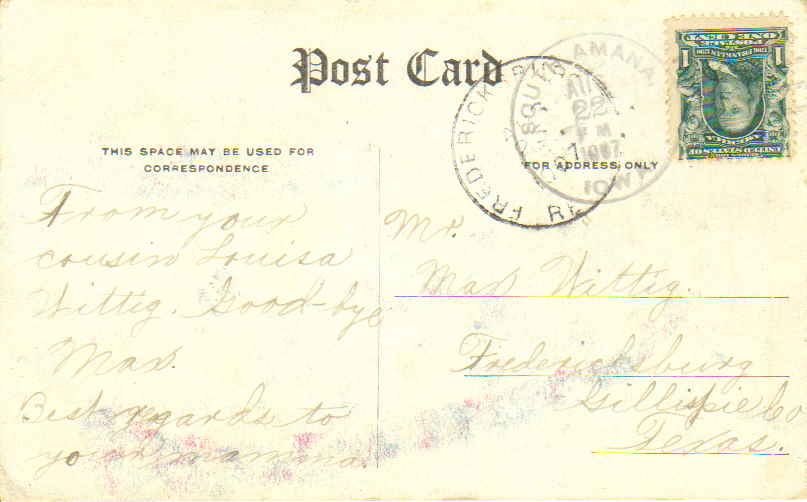 Post Card
THIS SPACE MAY BE USED FOR
CORRESPONDENCE
FOR ADDRESS ONLY
AMANA,
AUG
22
PM
1907
IOWA
FREDERICKSBURG
From your
cousin Louisa
Wittig. Good-bye
Max.
Best regards to
your mamma.
Mr.
Max Wittig.
Fredericksburg
Gillispie Co
Texas.
POSTAGE
ONE CENT
1
1
AMERICA
UNITED STATES OF